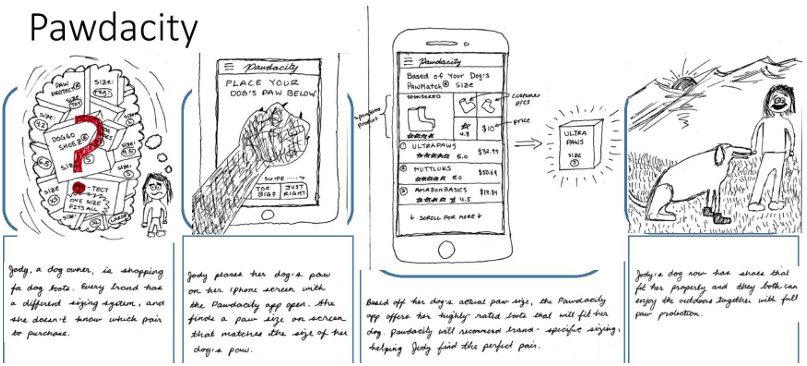 Pawdacity
PAW
PROTECT
SIZE:
REG.
SIZE:
SIZE:
4.2
DOGGO
SHOEZ
SIZE:
S
SIZE
XS
-TECT
ONE SIZE
FITS ALL
LARGE
Jody, a dog owner, is shopping
for dog boots. Every brand has
a different sizing system, and
she doesn't know which pair
to purchase.
Pawdacity
PLACE YOUR
DOG'S PAW BELOW
SWIPE ....>
TOO
BIG?
JUST
RIGHT!
Jody places her dog's paw
on her iphone screen with
the Pawdacity app open. She
finds a paw size on screen
that matches the size of her
dog's paw.
Pawdacity
Based of Your Dog's
PawMatch® Size
SPONSORED
sponsored
product
customer
pics
4.8
$10
price
① ULTRAPAWS
5.0
$32.99
② MUTTLUKS
5.0
③ AMAZONBASICS
4.5
↓ SCROLL FOR MORE ↓
ULTRA
PAWS
SIZE
Based off her dog's actual paw size, the Pawdacity
app offers her highly-rated boots that will fit her
dog. Pawdacity will recommend brand-specific sizing,
helping Jody find the perfect pair.
Jody's dog now has shoes that
fit her properly and they both can
enjoy the outdoors together with full
paw protection.